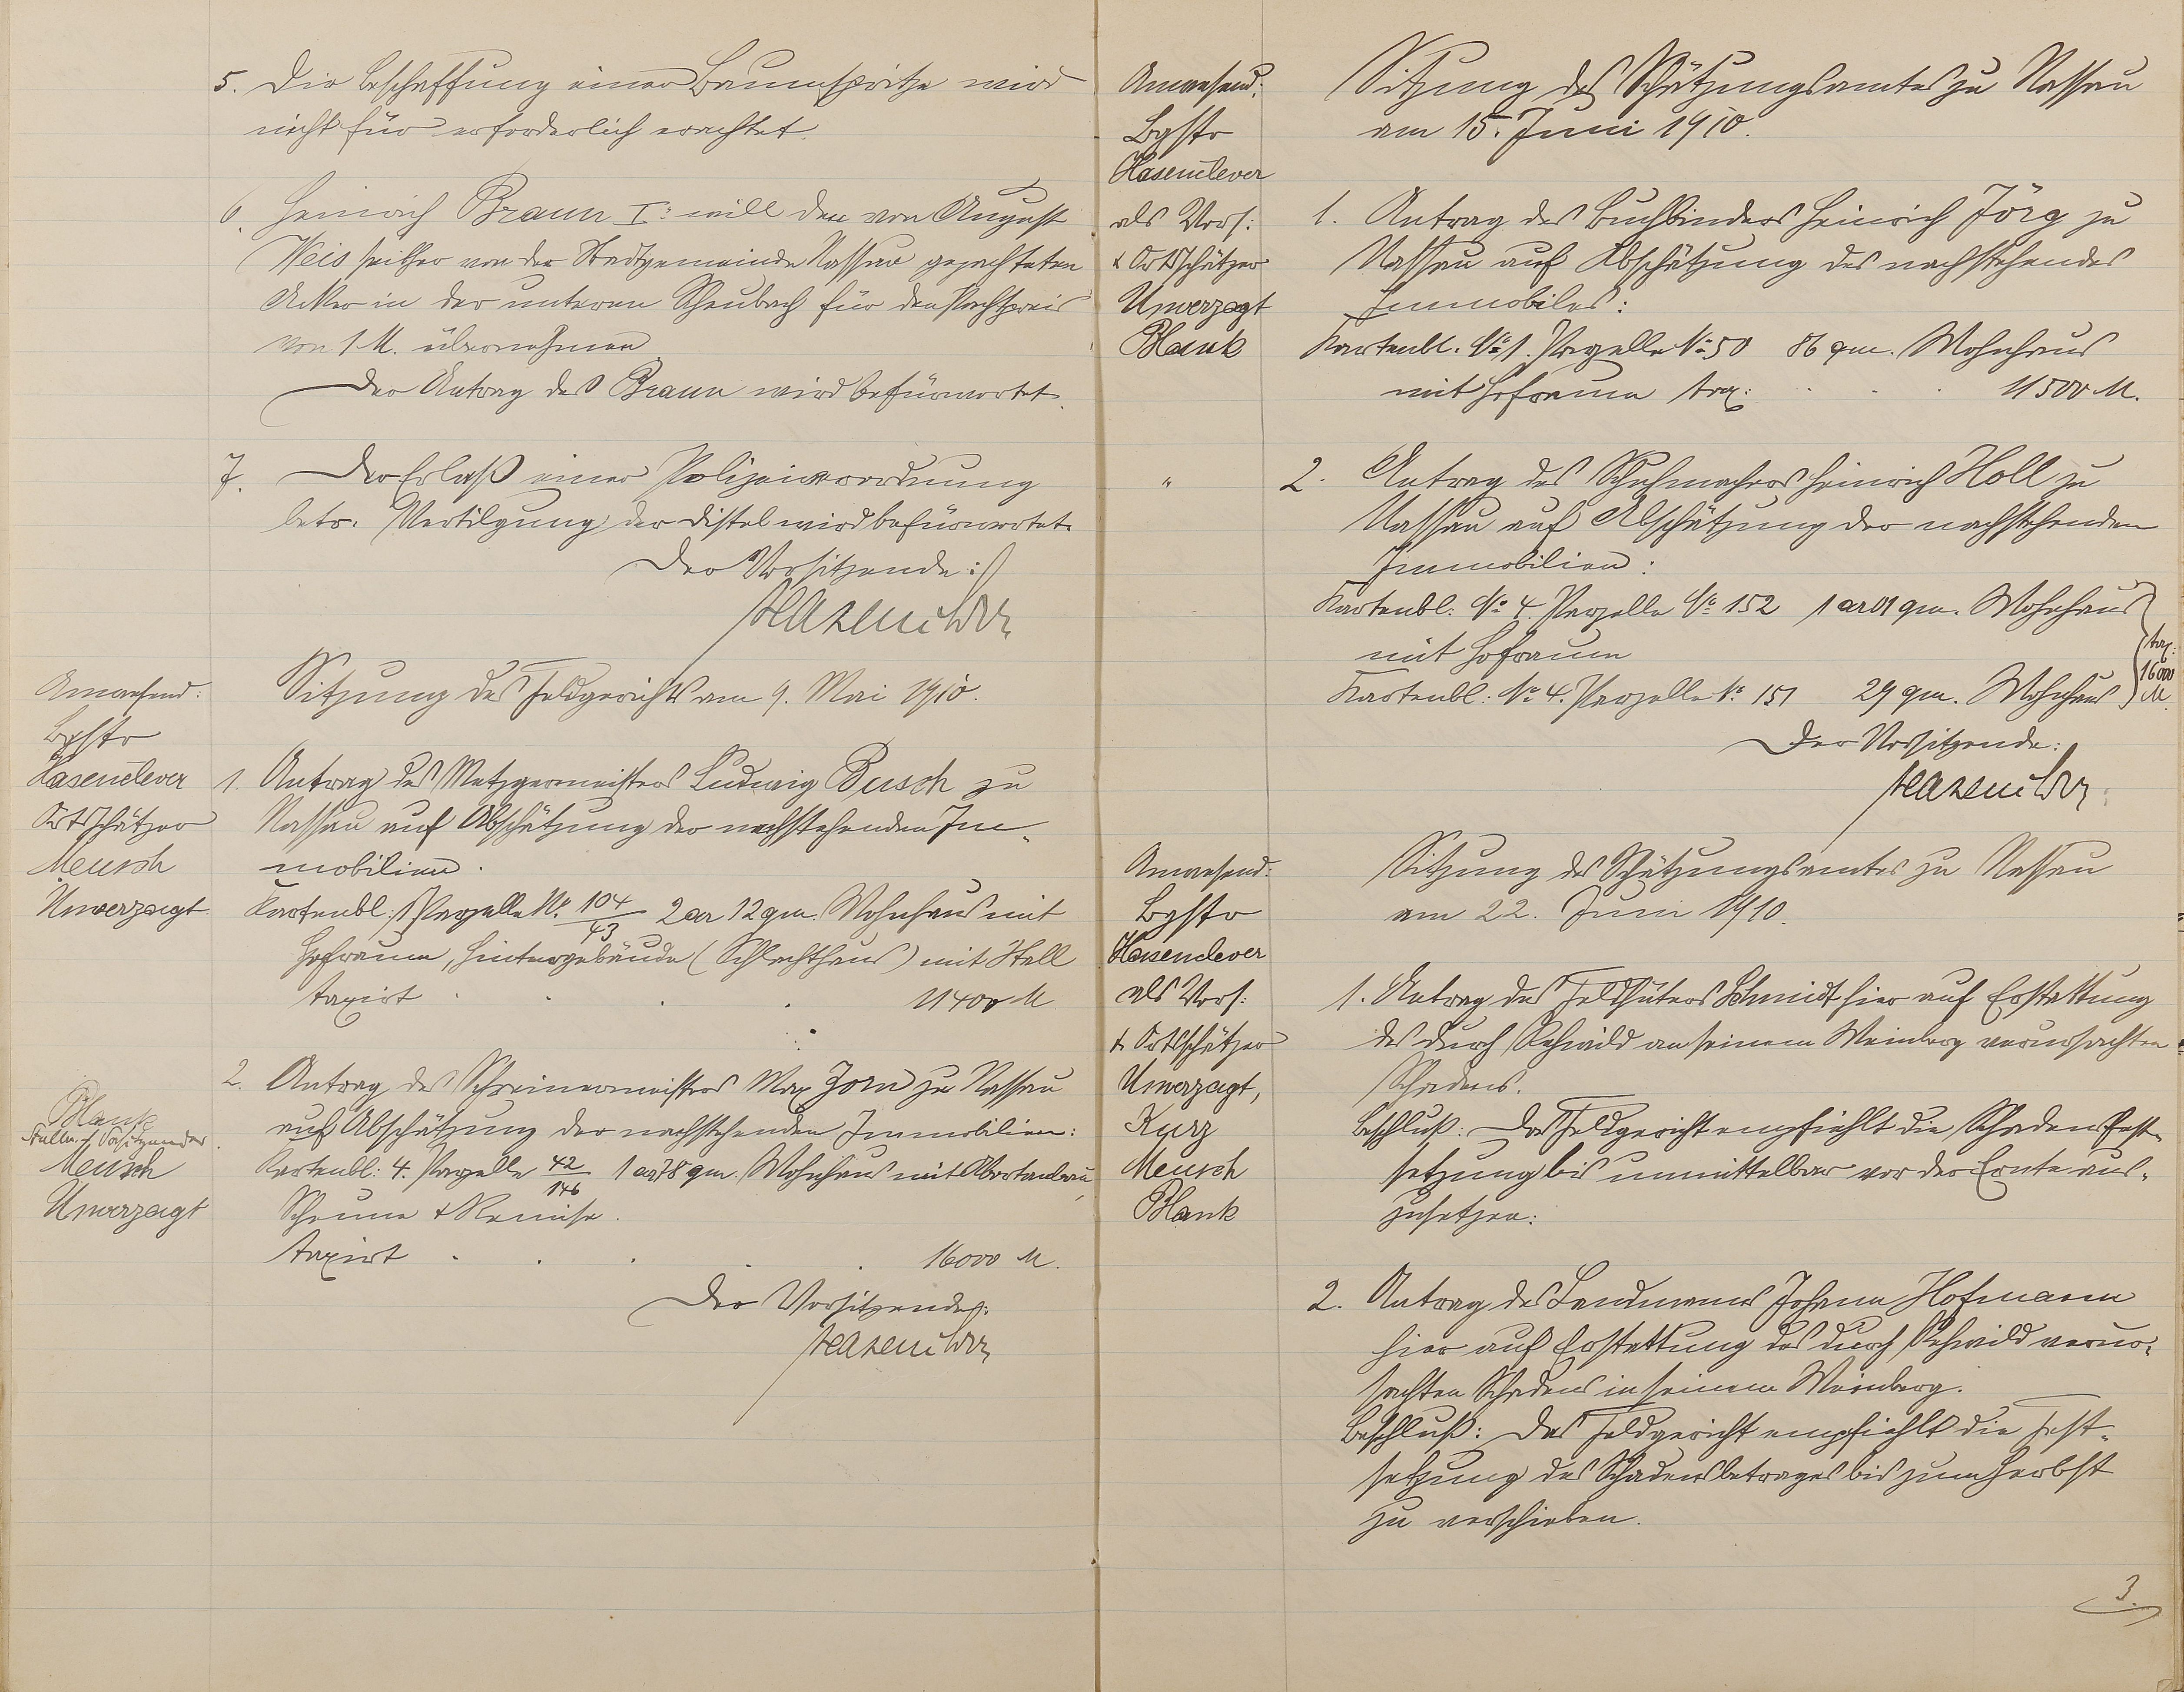 5. Die Beschaffung einer Baumspritze wird
nicht für erforderlich erachtet.
6. Heinrich Braun I: will den von August
Weis seither von der Stadtgemeinde Nassau gepachteten
Acker in der unteren Scheubach für den Pachtpreis
von 1 M. übernehmen
Der Antrag des Braun wird befürwortet.
7. Der Erlaß einer Polizeiverordnung
betr. Vertilgung der Distel wird befürwortet.
Der Vorsitzende:
Hasenclever
Anwesend:
Bgstr
Hasenclever
Ortsschätzer
Meusch
Unverzagt
Sitzung des Feldgerichts am 9. Mai 1910.
1. Antrag des Metzgermeisters Ludwig Busch zu
Nassau auf Abschätzung der nachstehenden Im-
mobilien.
Kartenbl: 1 Parzelle Nr. 104/43 2 ar 12 qm. Wohnhaus mit
Hofraum, Hintergebäude (Schlachthaus) mit Stall
taxirt . . . . 11400 M
Blank
Stellv. Vorsitzender.
Meusch
Unverzagt
2. Antrag des Schreinermeisters Max Zorn zu Nassau
auf Abschätzung der nachstehenden Immobilien:
Kartenbl: 4. Parzelle 42/146 1 ar 78 qm. Wohnhaus mit Abortanbau,
Scheune & Remise.
taxirt . . . . . 16000 M.
Der Vorsitzende:
Hasenclever
Anwesend:
Bgstr
Hasenclever
als Vors:
& Ortsschätzer
Unverzagt
Blank
Sitzung des Schätzungsamtes zu Nassau
am 15. Juni 1910.
1. Antrag des Buchbinders Heinrich Jörg zu
Nassau auf Abschätzung des nachstehendes
Immobiles:
Kartenbl. No 1. Parzelle No 50 86 qm. Wohnhaus
mit Hofraum tax: . . . 11500 M.
"
2. Antrag des Schuhmachers Heinrich Holl zu
Nassau auf Abschätzung der nachstehenden
Immobilien:
Kartenbl: No 4. Parzelle No 152 1 ar 01 qm. Wohnhaus
mit Hofraum
Kartenbl: No 4. Parzelle No 151 29 qm. Wohnhaus
tax:
16000
M.
Der Vorsitzende:
Hasenclever
Anwesend:
Bgstr
Hasenclever
als Vors:
& Ortsschätzer
Unverzagt,
Kurz
Meusch
Blank
Sitzung des Schätzungsamtes zu Nassau
am 22. Juni 1910.
1. Antrag des Feldhüters Schmidt hier auf Erstattung
des durch Rehwild an seinem Weinberg verursachten
Schadens.
Beschluß: Das Feldgericht empfiehlt die Schadenfest-
setzung bis unmittelbar vor der Ernte aus-
zusetzen:
2. Antrag des Landmanns Johann Hofmann
hier auf Erstattung des durch Rehwild verur-
sachten Schadens in seinem Weinberg.
Beschluß: Das Feldgericht empfiehlt die Fest-
setzung des Schadensbetrages bis zum Herbst
zu verschieben.
3.